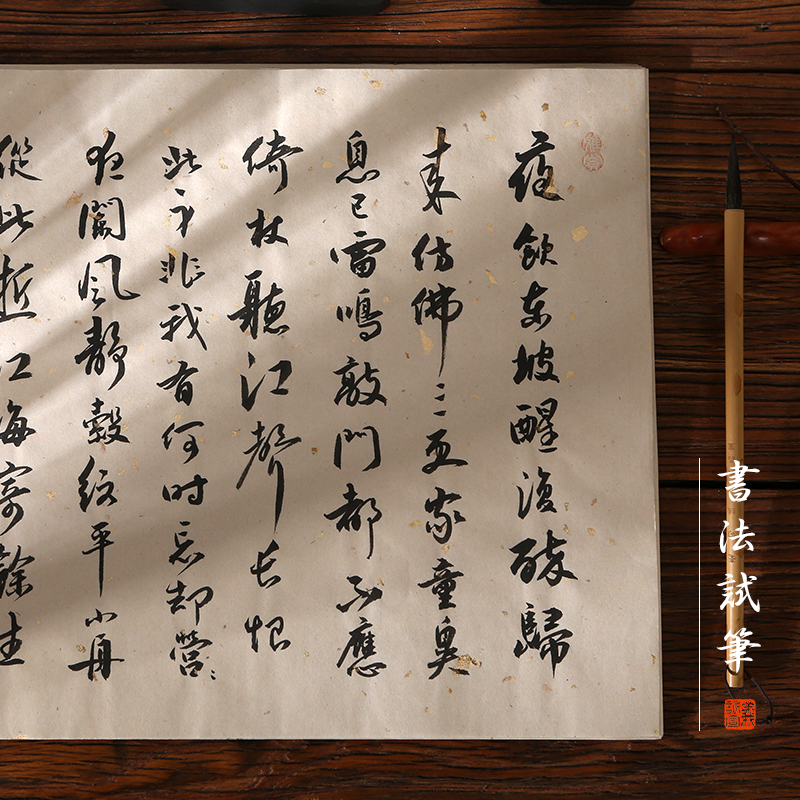 夜飲东坡醒復醉歸
来仿佛三更家童鼻
息已雷鳴敲門都不應
倚杖聽江聲长恨
此身非我有何时忘却營々
夜闌風靜縠紋平小舟
從此逝江海寄餘生
書法試筆